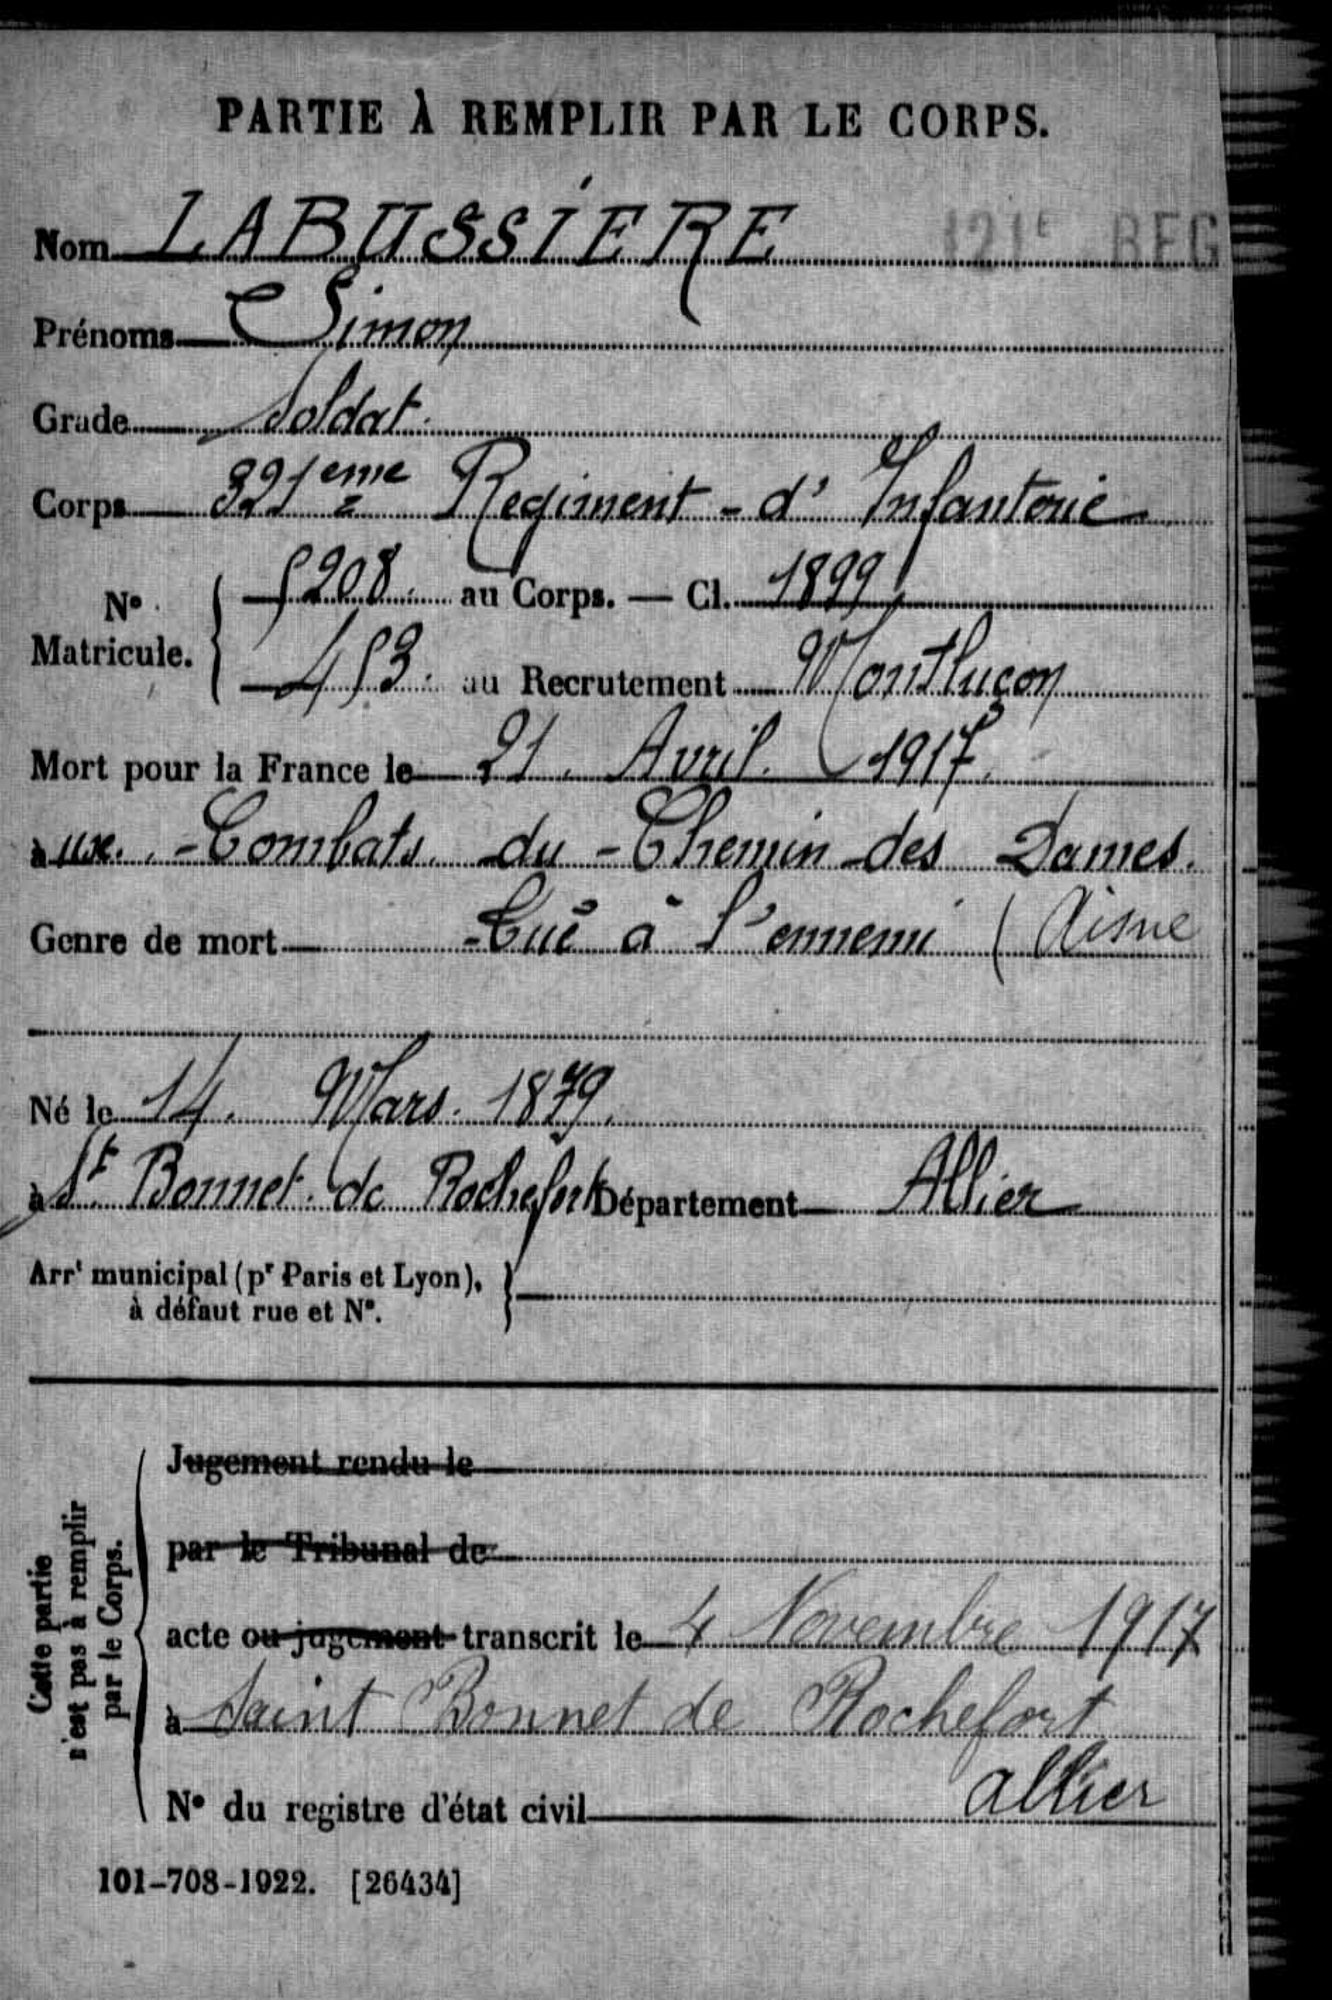 PARTIE À REMPLIR PAR LE CORPS.
Nom LABUSSIÈRE
121e REG
Prénoms Simon
Grade Soldat.
Corps 321eme Regiment - d' Infanterie
No Matricule. { 5208. au Corps. — Cl. 1899
453. au Recrutement Montluçon
Mort pour la France le 21. Avril. 1917.
à ux. - Combats du - Chemin des Dames.
Genre de mort Tué à l'ennemi ( Aisne
Né le 14. Mars. 1879.
à St. Bonnet. de Rochefort Département Allier
Arrt municipal (pr Paris et Lyon), }
à défaut rue et No.
Cette partie
n'est pas à remplir
par le Corps.
Jugement rendu le
par le Tribunal de
acte ou jugement transcrit le 4 Novembre 1917
à Saint Bonnet de Rochefort
No du registre d'état civil Allier
101-708-1922. [26434]